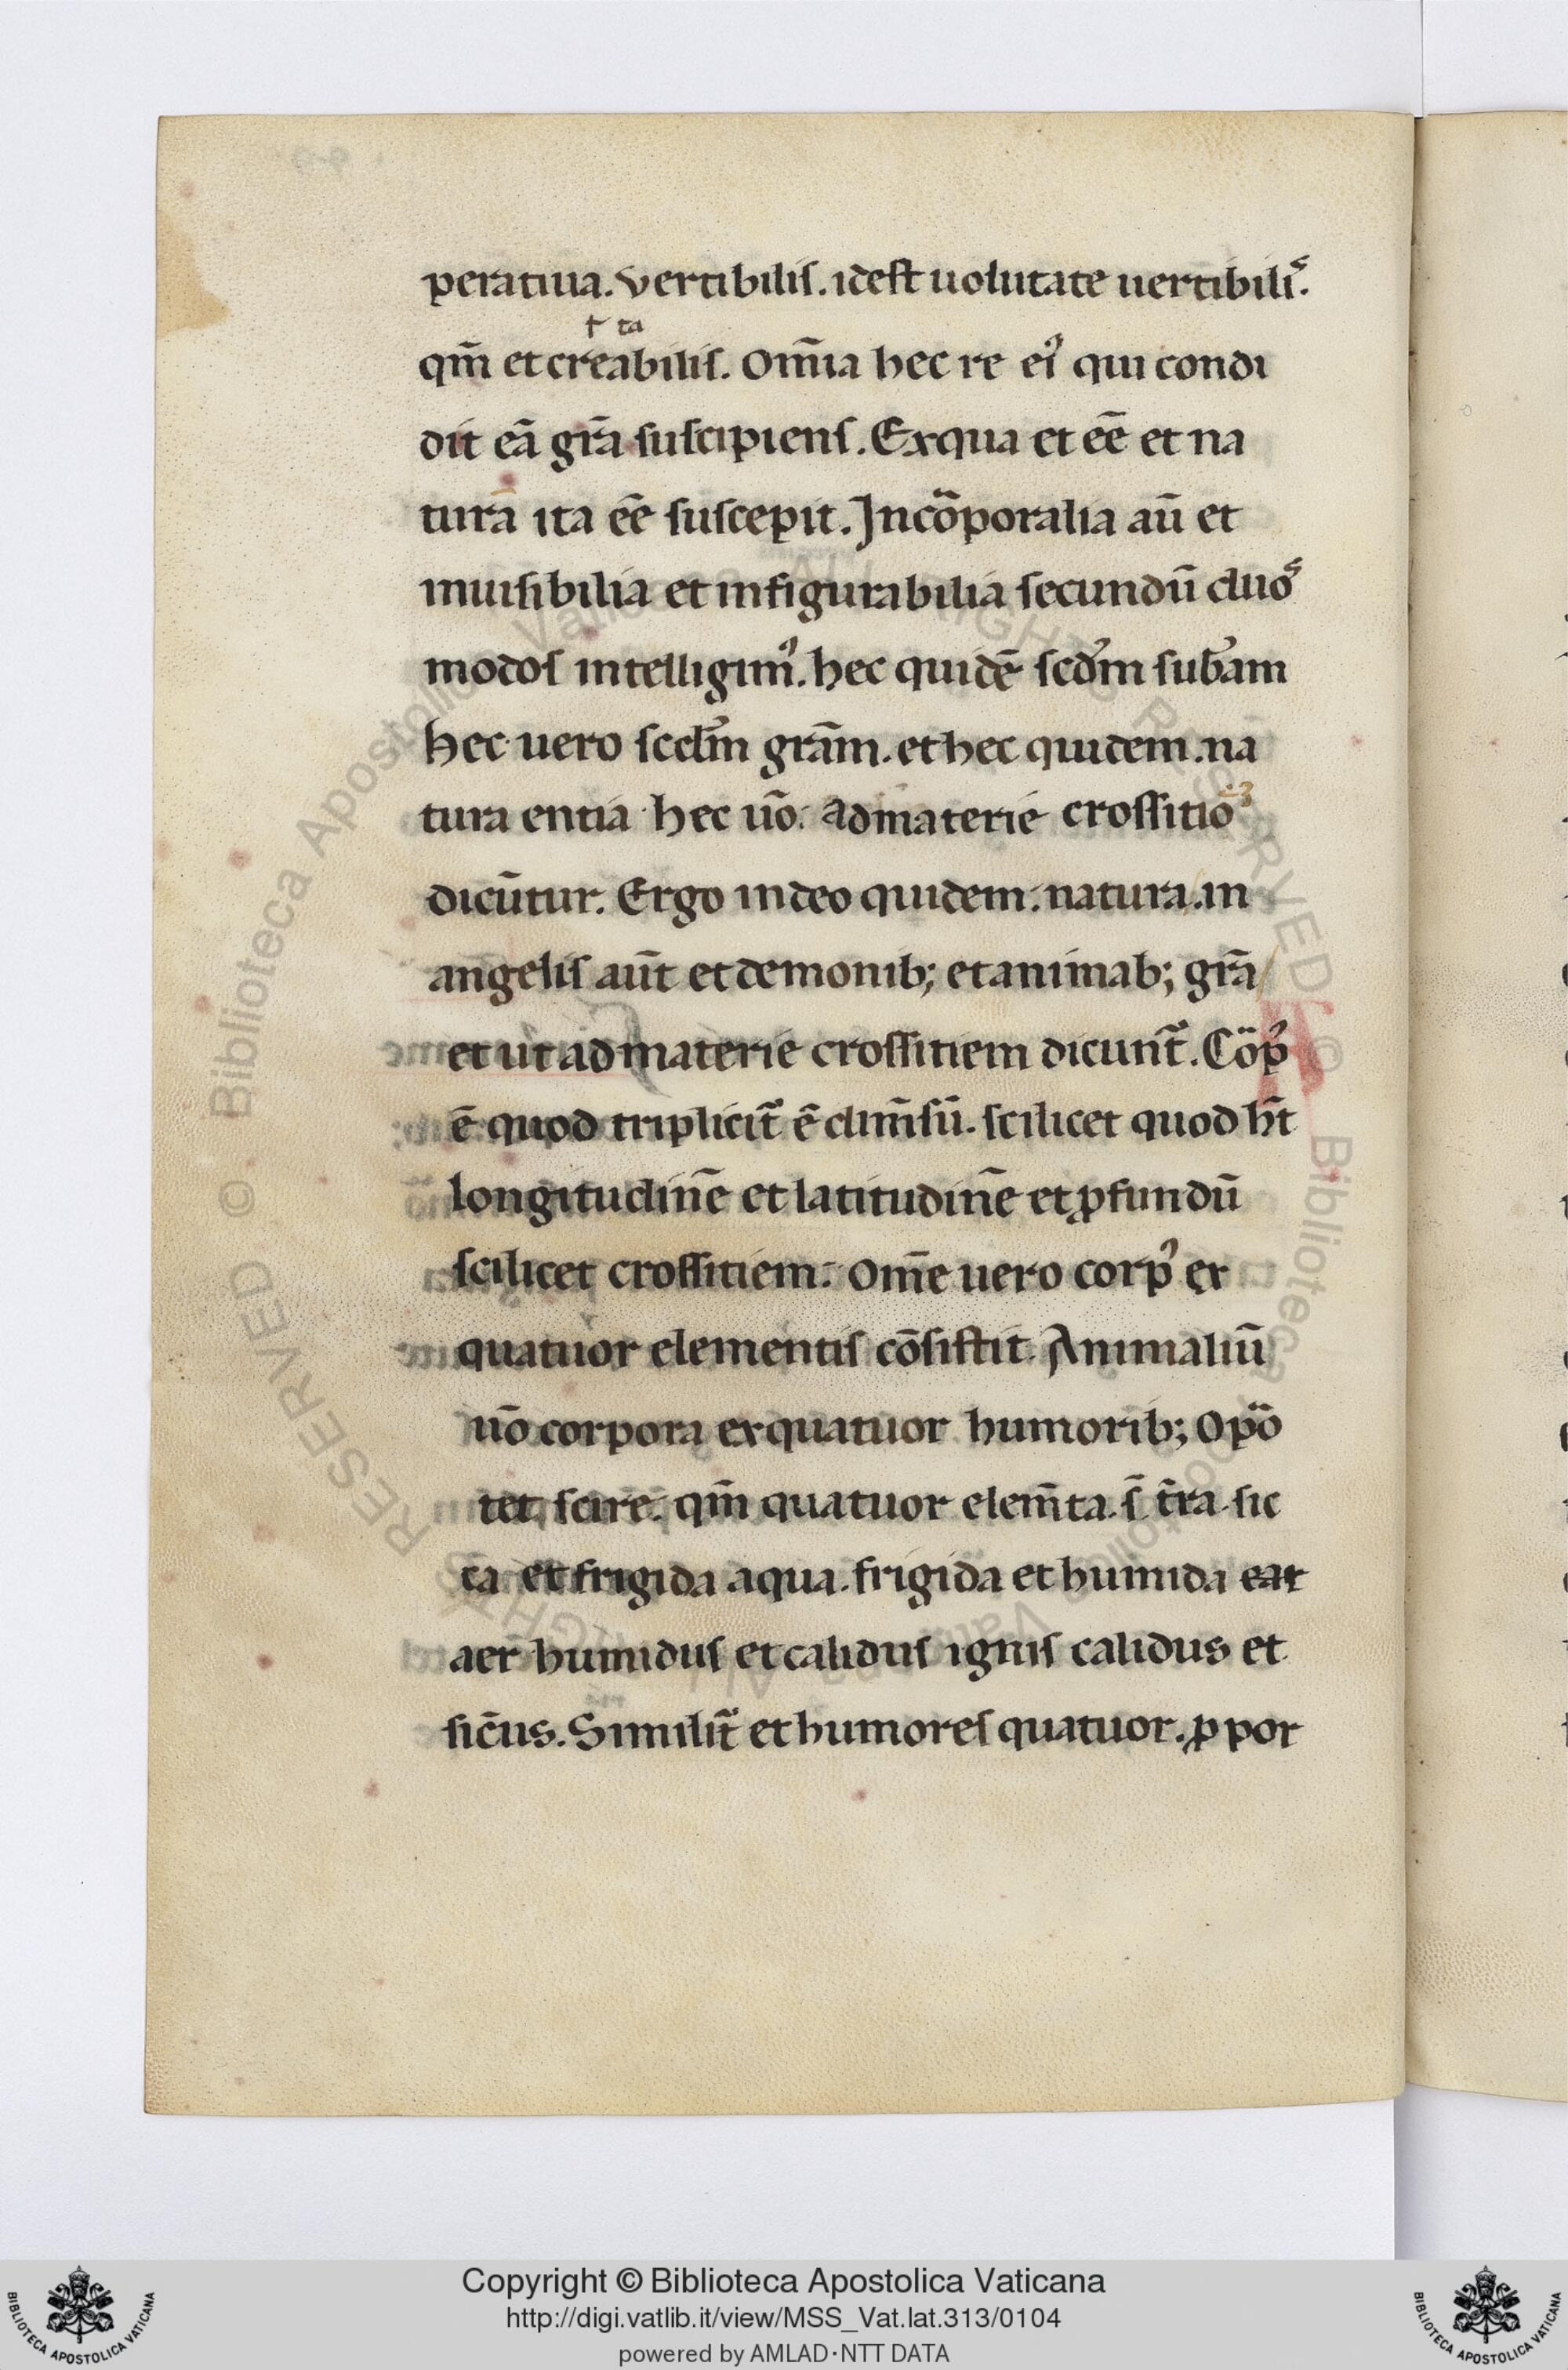 peratiua. vertibilis. idest uolutate uertibiliˢ.
ɫ ta
qm̄ et creabilis. Om̄ia hec re eiꝰ qui condi
dit eā gr̄a suscipiens. Ex qua et ee̅ et na
turā ita ee̅ suscepit. Incōporalia aū et
inuisibilia et infigurabilia secundū duoˢ
modos intelligimꝰ. hec quidē scd̄m sub̄am
hec uero scd̄m gr̄am. et hec quidem. na
tura entia hec uō. ad materie crossitiō
dicūtur. Ergo in deo quidem. natura. in
angelis aūt et demonib; et animab; gr̄a
et ut ad materie crossitiem dicunt̄. Cōpꝰ
ē quod triplicit̄ ē dim̄sū. scilicet quod h̄t
longitudinē et latitudinē et ꝓfundū
scilicet crossitiem. Om̄e uero corpꝰ ex
quatuor elementis cōsistit. Animaliū
uō corpora ex quatuor humorib; Opō
tet scire. qm̄ quatuor elem̄ta. s̄ t̄ra. sic
ca et frigida aqua. frigida et humida eat
aer humidus et calidus ignis calidus et
sic̄us. Similit̄ et humores quatuor. ꝓpor
Copyright © Biblioteca Apostolica Vaticana
http://digi.vatlib.it/view/MSS_Vat.lat.313/0104
powered by AMLAD·NTT DATA
BIBLIOTECA APOSTOLICA VATICANA
BIBLIOTECA APOSTOLICA VATICANA